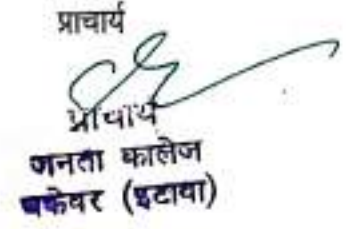 प्राचार्य
प्राचार्य
जनता कालेज
बकेवर (इटावा)